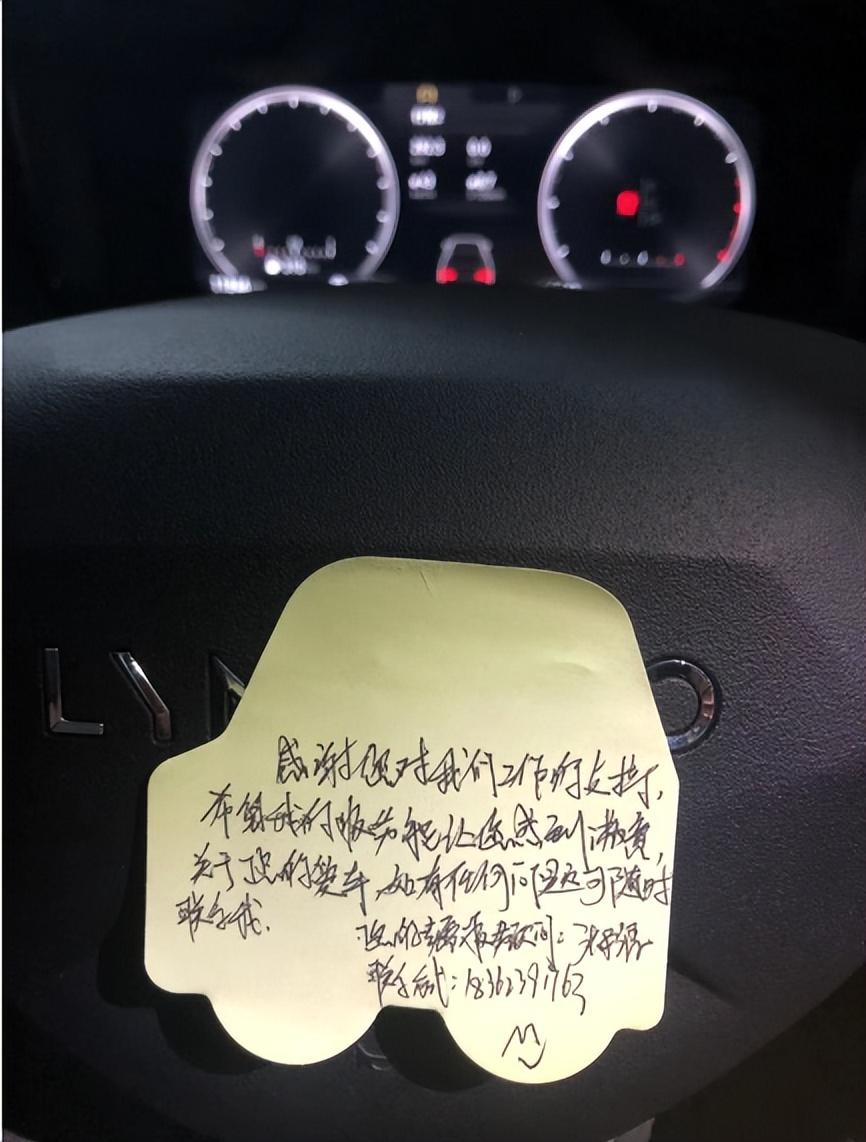 LYN O
感谢您对我们工作的支持，
希望我的服务能让您感到满意，
关于您的爱车，如有任何问题可随时
联系我。
您的专属服务顾问：
联系方式：18362391763